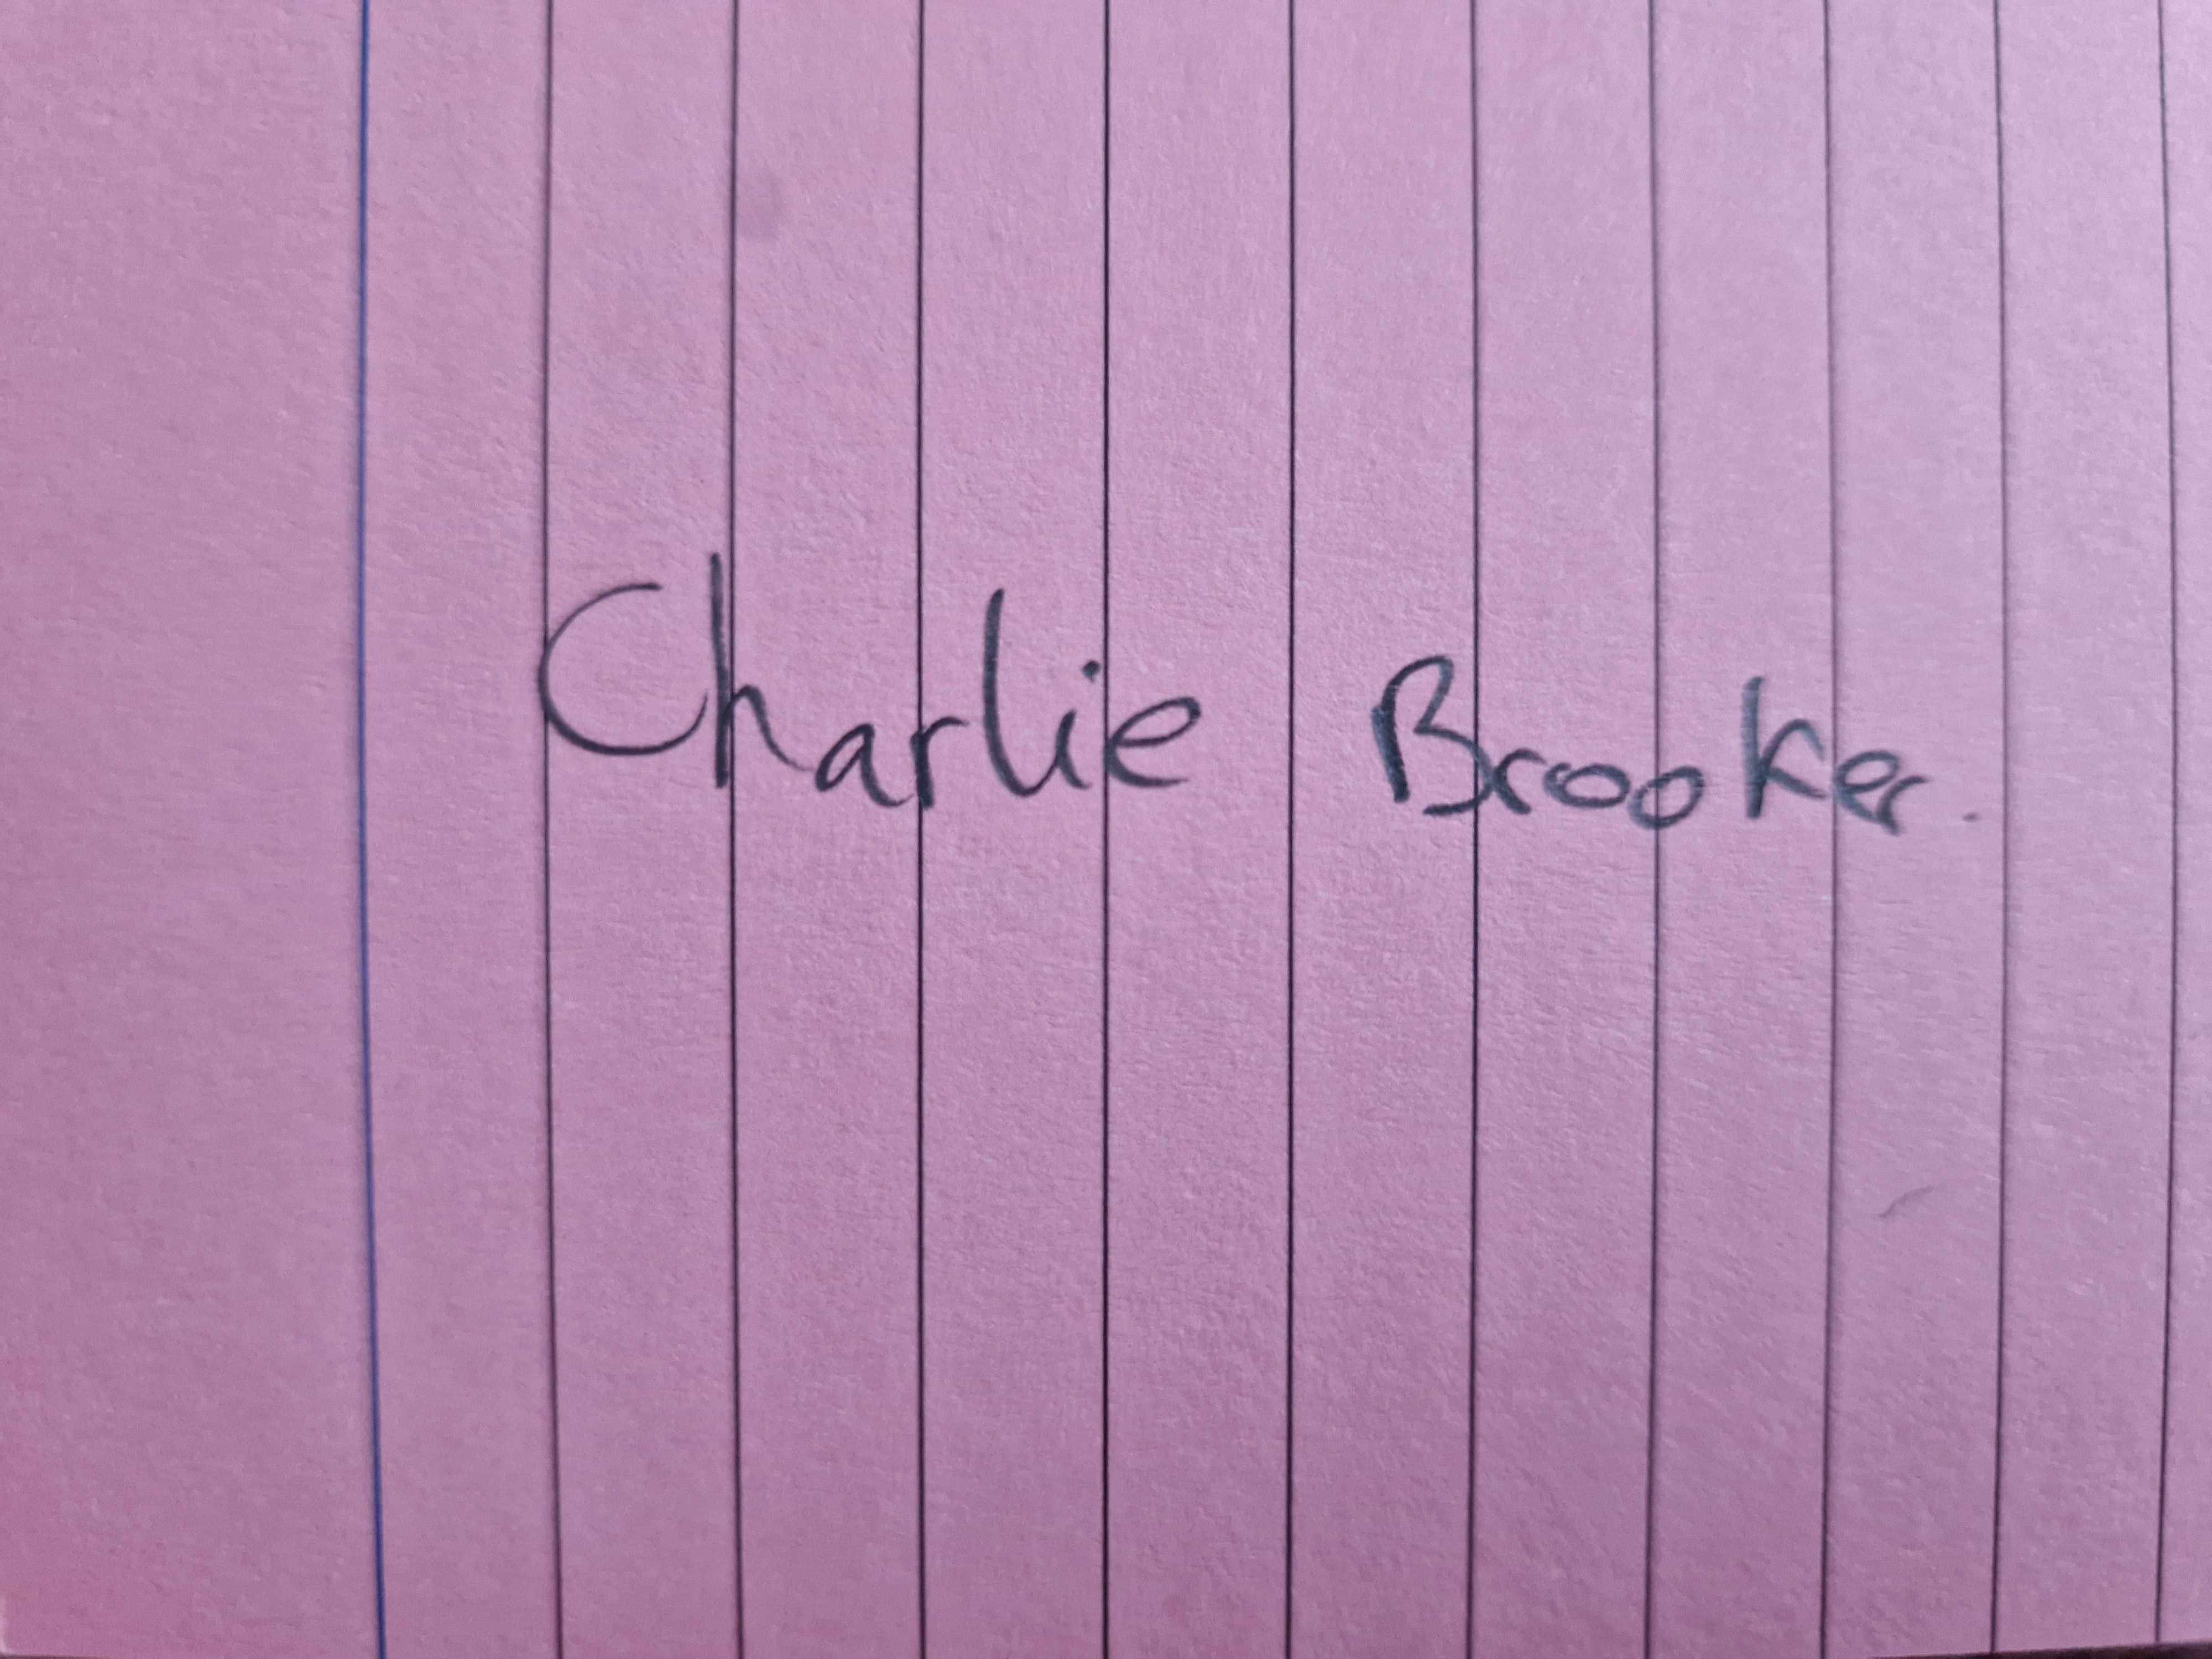 Charlie Brooker.